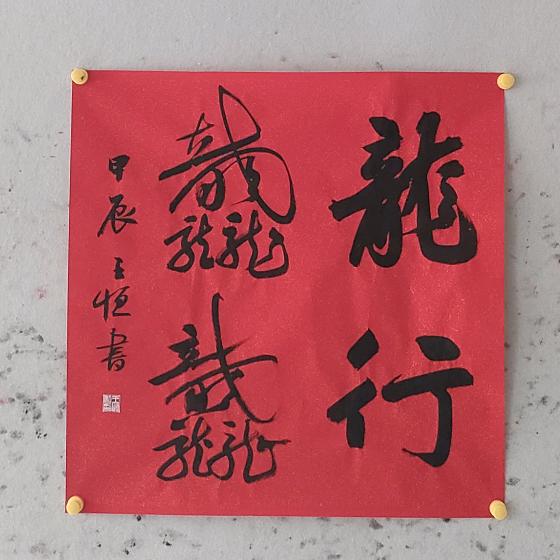 龍行
龘龘
甲辰王恒書